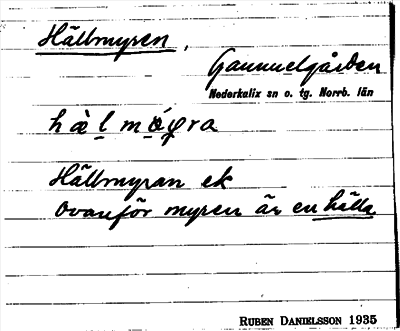 Hällmyren,
Gammelgården
Nederkalix sn o. tg. Norrb. län
Hällmyran ek
Ovanför myren är en hälla
RUBEN DANIELSSON 1935